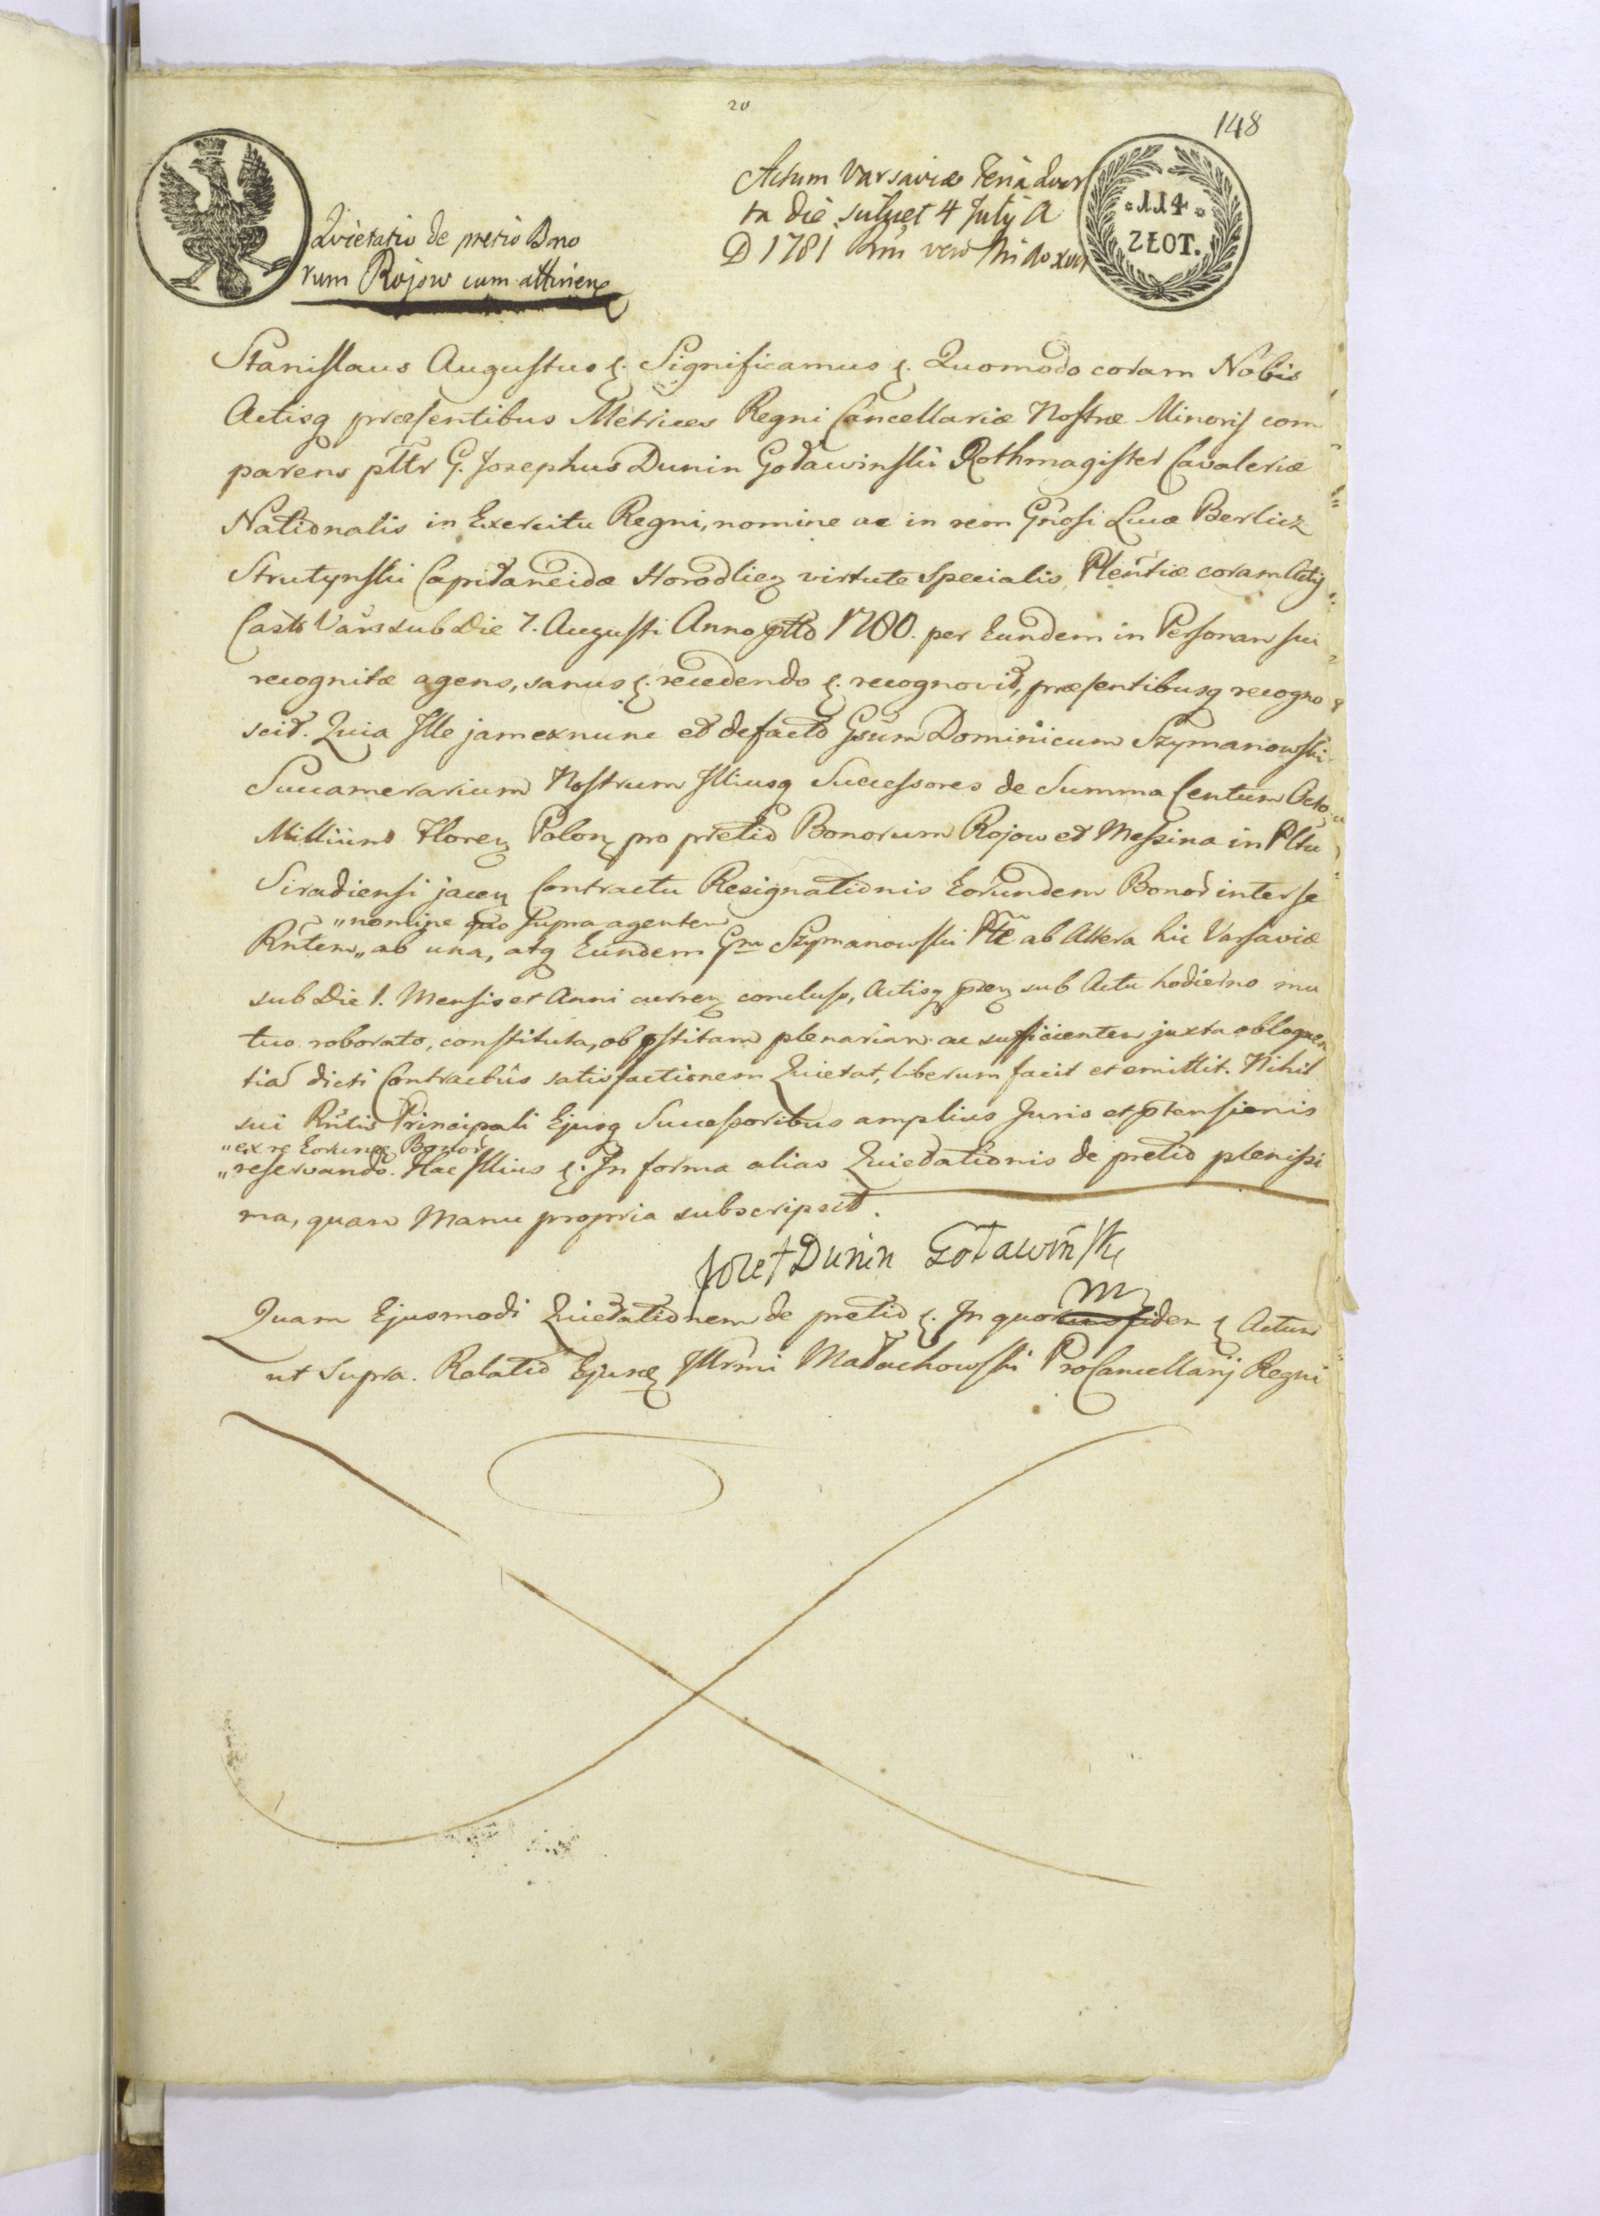 20
148
114
ZŁOT.
Quietatio de pretio Bono
rum Rojow cum attinen
Actum Varsaviæ Feria Quar
ta die scilicet 4 July A
D 1781
Stanislaus Augustus &. Significamus &. Quomodo coram Nobis
Actisq præsentibus Metrices Regni Cancellariæ Nostræ Minoris com
parens pltr G. Josephus Dunin Goławinski Rothmagister Cavaleriæ
Nationalis in Exercitu Regni, nomine ac in rem Gnosi Lucæ Berlicz
Strutynski Capitaneidæ Horodlien virtute specialis Plentiæ coram Actis
Casts Vars sub Die 7. Augusti Anno ptto 1780. per Eundem in Personam sui
recognitæ agens, sanus &. recedendo &. recognovit, præsentibusq recogno
scit. Quia Ille jam ex nunc et de facto Gsum Dominicum Szymanowski
Succamerarium Nostrum Illiusq Successores de Summa Centum Octo
Millium Floren Polon pro pretio Bonorum Rojow et Messina in Pltu
Siradiensi jacen Contractu Resignationis Eorundem Bonor inter se
„nomine quo supra agentem
Rntem„ ab una, atq Eundem Gm Szymanowski Pte ab Altera hic Varsaviæ
sub Die 1. Mensis et Anni curren concluso, Actisq pren sub Actu hodierno mu
tuo roborato, constituta, ob pstitam plenariam ac sufficientem juxta obloquen
tiam dicti Contractûs satisfactionem Quietat, liberum facit et emittit. Nihil
sui Rntis Principali Ejusq Successoribus amplius Juris et ptensionis
„ex re Eorund Bonor
„reservando. Hac Illius &. In forma alias Quietationis de pretio plenissi
ma, quam Manu propria subscripsit.
Jozef Dunin Goławinski
m
Quam Ejusmodi Quietationem de pretio &. In quorum fidem & Actum
ut Supra. Relatio Ejusd Illrmi Małachowski ProCancellarij Regni